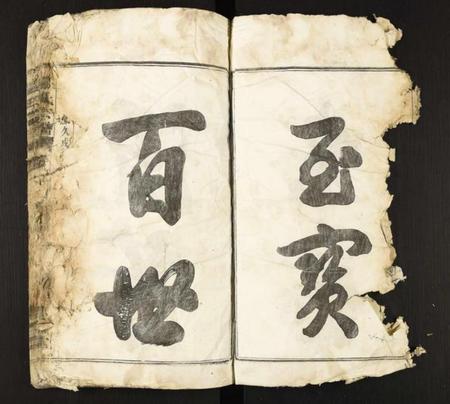 至寶
百世